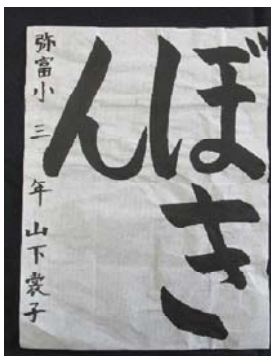 ぼき
ん
弥富小 三年 山下裳子